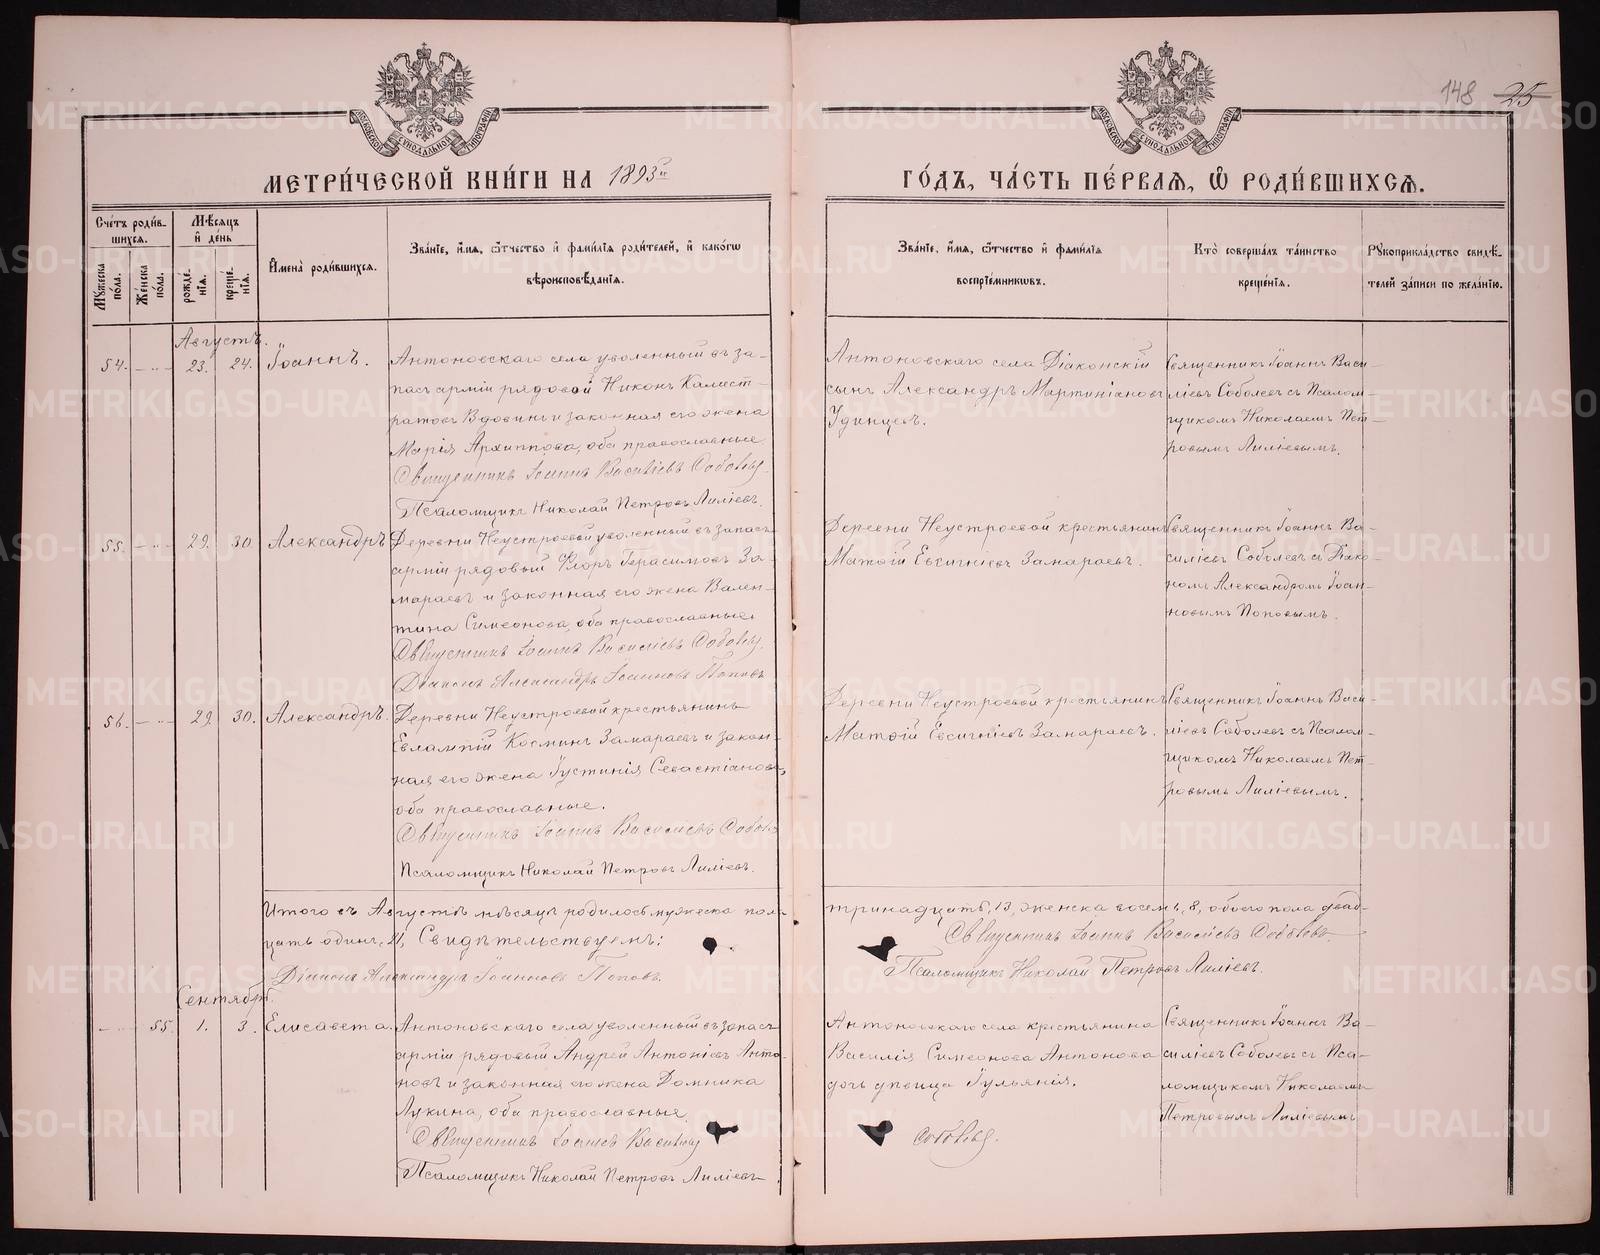 148 25
МОСКОВСКОЙ СѴНОДАЛЬНОЙ ТИПОГРАФІИ
МОСКОВСКОЙ СѴНОДАЛЬНОЙ ТИПОГРАФІИ
МЕТРИ́ЧЕСКОЙ КНИ́ГИ НА 1893й
ГО́ДЪ, ЧА́СТЬ ПЕ́РВАЯ, Ѽ РОДИ́ВШИХСЯ.
Сче́тъ роди́в-
шихся.
Мѣ́сяцъ
и҆ де́нь
Му́жеска по́ла.
Же́нска по́ла.
рожде́-нія.
креще́-нія.
И҆мена̀ роди́вшихся.
Зва́ніе, и҆́мя, ѻ҆́тчество и҆ фами́лія роди́телей, и҆ како́гѡ
вѣроисповѣ́данія.
Зва́ніе, и҆́мя, ѻ҆́тчество и҆ фами́лія
воспріе́мникѡвъ.
Кто̀ соверша́лъ та́инство
креще́нія.
Рꙋкоприкла́дство свидѣ́-
телей за́писи по жела́нію.
Августъ.
54. - .. - 23. 24. Іоаннъ.
Антоновскаго села уволенный въ за-
пасъ арміи рядовой Никонъ Калист-
ратовъ Вдовинъ и законная его жена
Марія Архиппова, оба православные
Священникъ Іоаннъ Васильевъ Соболевъ.
Псаломщикъ Николай Петровъ Лиліевъ.
Антоновскаго села Діаконскій
сынъ Александръ Мартиніановъ
Удинцевъ.
Священникъ Іоаннъ Васи-
ліевъ Соболевъ съ Псалом-
щикомъ Николаемъ Пет-
ровымъ Лиліевымъ.
55. - .. - 29. 30. Александръ
Деревни Неустроевой уволенный въ запасъ
арміи рядовый Флоръ Герасимовъ За-
мараевъ и законная его жена Вален-
тина Симеонова, оба православные.
Священникъ Іоаннъ Васильевъ Соболевъ.
Діаконъ Александръ Іоанновъ Поповъ
Деревни Неустроевой крестьянинъ
Матѳій Евсигніевъ Замараевъ.
Священникъ Іоаннъ Ва-
силіевъ Соболевъ съ Діако-
номъ Александромъ Іоан-
новымъ Поповымъ.
56. - .. - 29. 30. Александръ.
Деревни Неустроевой крестьянинъ
Евлампій Косминъ Замараевъ и закон-
ная его жена Іустинія Севастіанова,
оба православные.
Священникъ Іоаннъ Васильевъ Соболевъ
Псаломщикъ Николай Петровъ Лиліевъ.
Деревни Неустроевой крестьянинъ
Матѳій Евсигніевъ Замараевъ.
Священникъ Іоаннъ Васи-
ліевъ Соболевъ съ Псалом-
щикомъ Николаемъ Пет-
ровымъ Лиліевымъ.
Итого въ Августѣ мѣсяцѣ родилось мужеска пола
тринадцать, 13, женска восемь, 8, обоего пола двад-
цать одинъ, 21, Свидѣтельствуемъ:
Священникъ Іоаннъ Васильевъ Соболевъ
Псаломщикъ Николай Петровъ Лиліевъ.
Діаконъ Александръ Іоанновъ Поповъ.
Сентябрь.
- .. 55. 1. 3. Елисавета.
Антоновскаго села уволенный въ запасъ
арміи рядовый Андрей Антоніевъ Анто-
новъ и законная его жена Домника
Лукина, оба православные
Священникъ Іоаннъ Васильевъ
Соболевъ.
Псаломщикъ Николай Петровъ Лиліевъ
Антоновскаго села крестьянина
Василія Симеонова Антонова
дочь дѣвица Іульянія.
Священникъ Іоаннъ Ва-
силіевъ Соболевъ съ Пса-
ломщикомъ Николаемъ
Петровымъ Лиліевымъ
METRIKI.GASO-URAL.RU